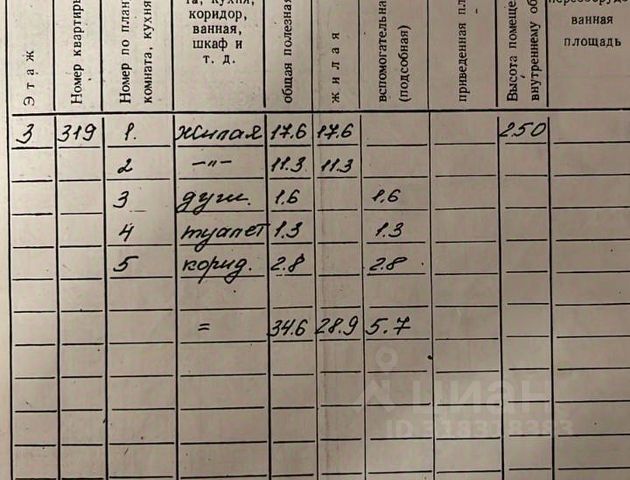 Этаж
Номер квартиры
Номер по план
комната, кухня
та, кухня,
коридор,
ванная,
шкаф и
т. д.
общая полезная
жилая
вспомогательна
(подсобная)
приведенная пл
Высота помеще
внутреннему об
переоборудо-
ванная
площадь
3 319 1. жилая 17.6 17.6 250
2 -"- 11.3 11.3
3 душ. 1.6 1.6
4 туалет 1.3 1.3
5 корид. 2.8 2.8
= 34.6 28.9 5.7
циан